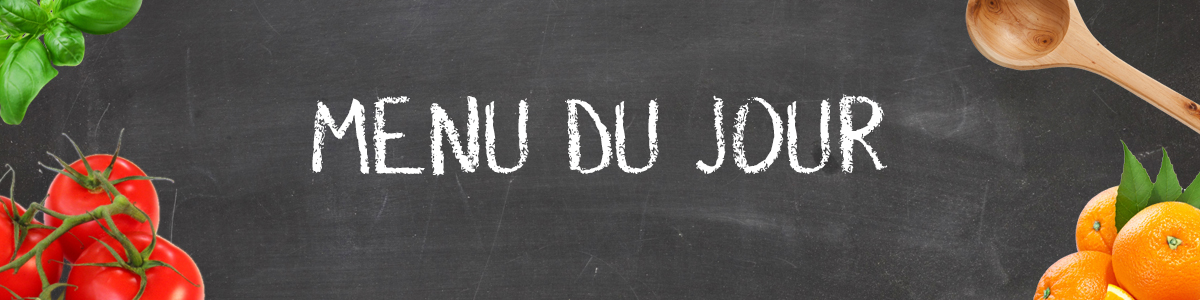 MENU DU JOUR